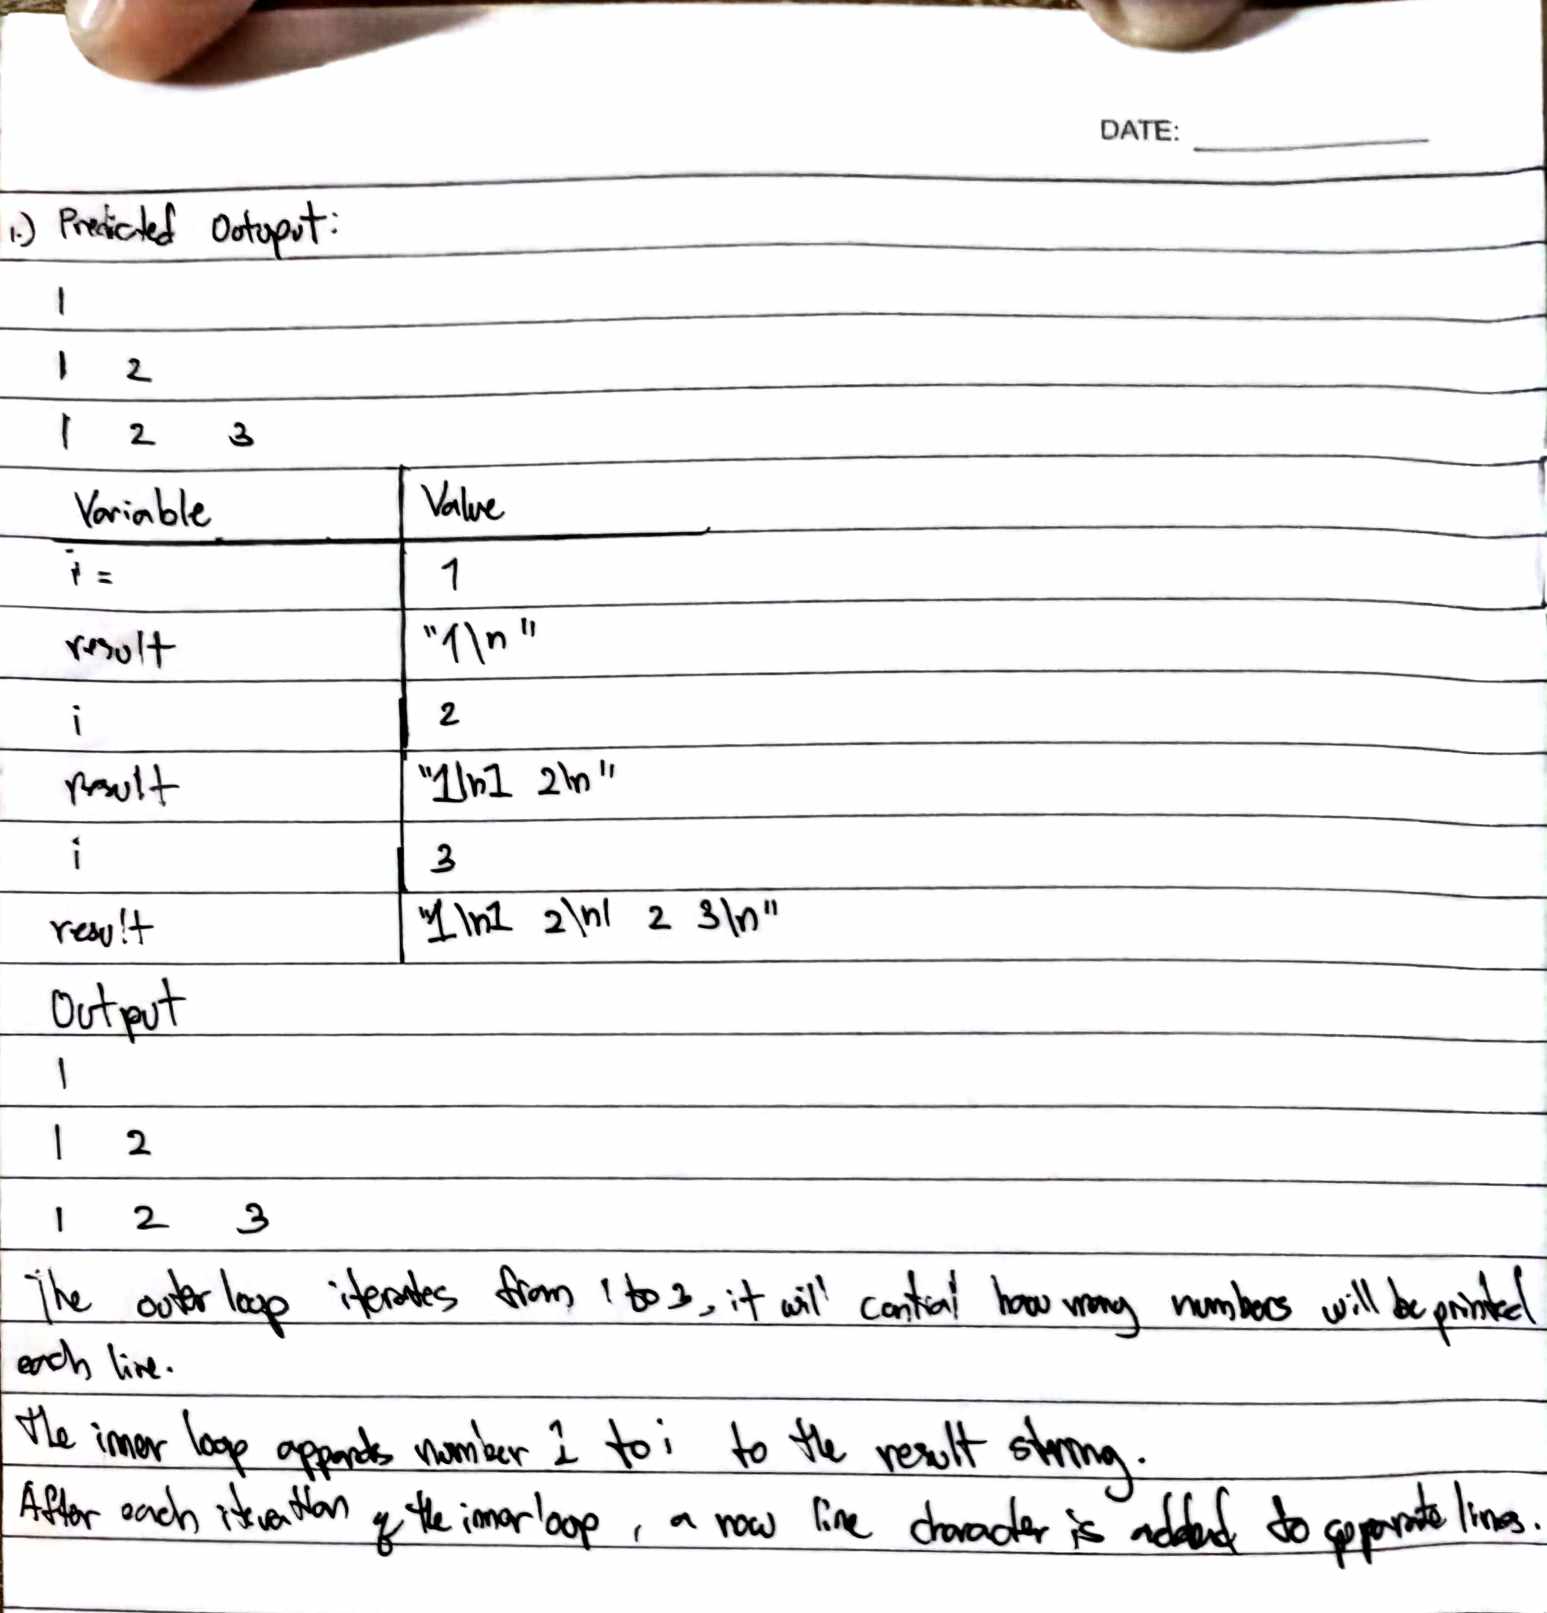 DATE:
1.) Predicted Ootuput:
1
1 2
1 2 3
Variable Value
i = 1
result "1\n"
i 2
result "1\n1 2\n"
i 3
result "1\n1 2\n1 2 3\n"
Output
1
1 2
1 2 3
The outer loop iterates from 1 to 3, it will control how many numbers will be printed
each line.
The inner loop appends number 1 to i to the result string.
After each iteration of the inner loop, a new line character is added to separate lines.